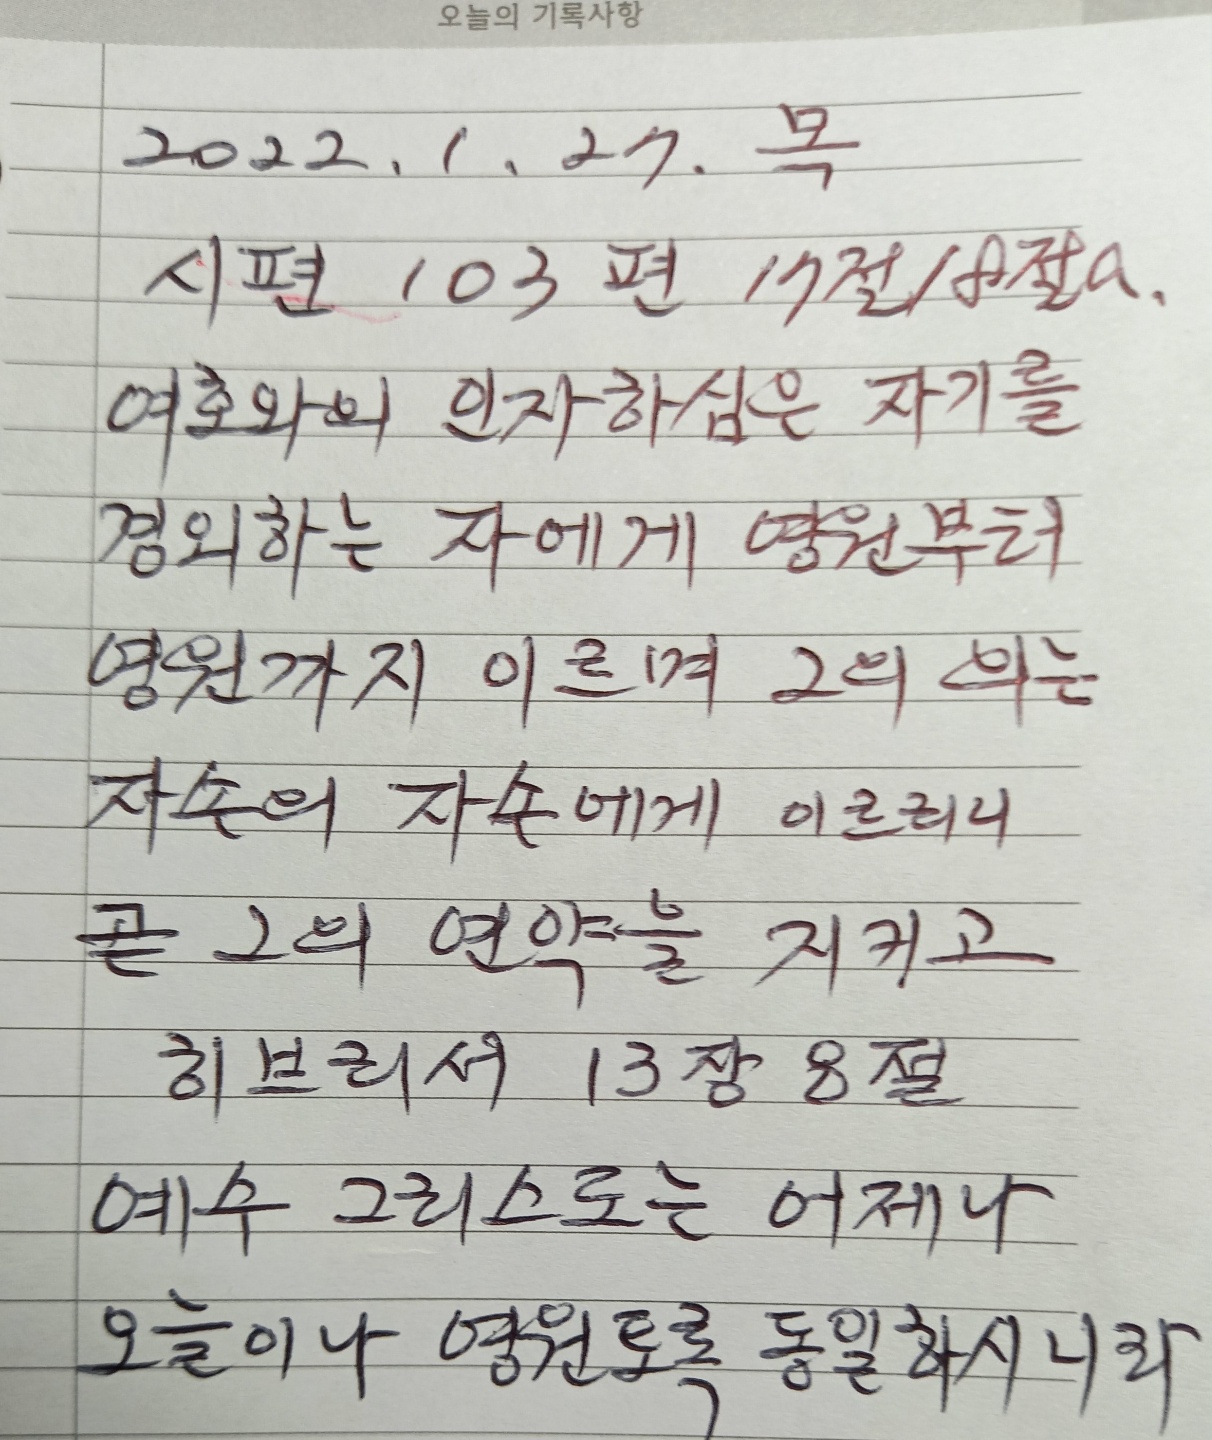 오늘의 기록사항
2022. 1. 27. 목
시편 103편 17절/18절a.
여호와의 인자하심은 자기를
경외하는 자에게 영원부터
영원까지 이르며 그의 의는
자손의 자손에게 이르리니
곧 그의 언약을 지키고
히브리서 13장 8절
예수 그리스도는 어제나
오늘이나 영원토록 동일하시니라